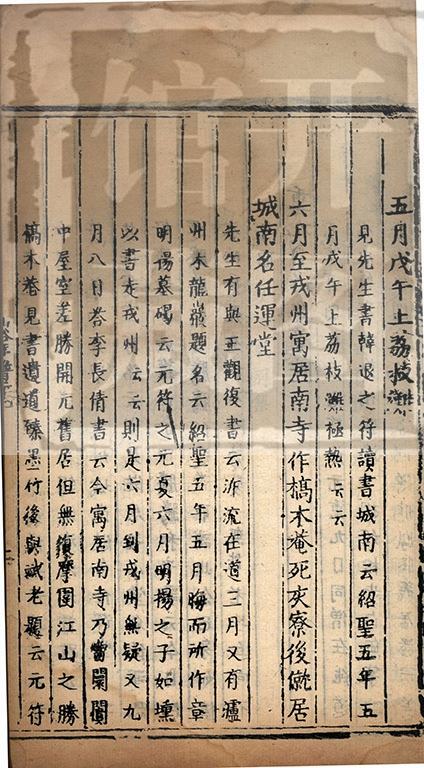 五月戊午上荔枝灘
見先生書韓退之符讀書城南云紹聖五年五
月戊午上荔枝灘極熱云云
六月至戎州寓居南寺作槁木菴死灰寮後僦居
城南名任運堂
先生有與王觀復書云泝流在道三月又有瀘
州木龍巖題名云紹聖五年五月晦而所作章
明揚墓碣云元符之元夏六月明揚之子如壎
以書走戎州云云則是六月到戎州無疑又九
月八日荅李長倩書云今寓居南寺乃當闤闠
中屋室差勝開元舊居但無摩圍江山之勝
槁木菴見書遺道臻墨竹後與斌老題云元符
馆开